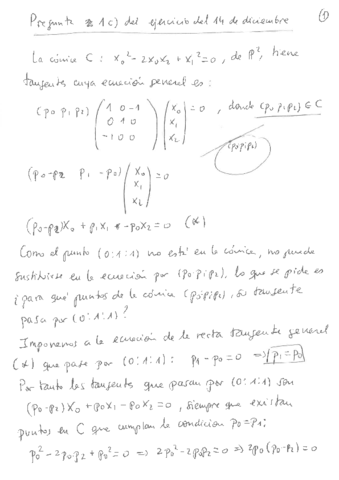 Pregunta 1c) del ejercicio del 14 de diciembre
①
La cónica C: x₀² - 2x₀x₂ + x₁² = 0, de P², tiene
tangentes cuya ecuación general es:
(p₀ p₁ p₂) ( 1 0 -1 / 0 1 0 / -1 0 0 ) ( x₀ / x₁ / x₂ ) = 0, donde (p₀ p₁ p₂) ∈ C
(p₀ p₁ p₂)
(p₀-p₂ p₁ -p₀) ( x₀ / x₁ / x₂ ) = 0
(p₀-p₂)x₀ + p₁x₁ - p₀x₂ = 0 (*)
Como el punto (0:1:1) no está en la cónica, no puede
sustituirse en la ecuación por (p₀:p₁:p₂), lo que se pide es
¿para qué puntos de la cónica (p₀:p₁:p₂), su tangente
pasa por (0:1:1)?
Imponemos a la ecuación de la recta tangente general
(*) que pase por (0:1:1): p₁ - p₀ = 0 ⇒ p₁ = p₀
Por tanto las tangentes que pasan por (0:1:1) son
(p₀-p₂)x₀ + p₀x₁ - p₀x₂ = 0, siempre que existan
puntos en C que cumplan la condición p₀ = p₁:
p₀² - 2p₀p₂ + p₀² = 0 ⇒ 2p₀² - 2p₀p₂ = 0 ⇒ 2p₀(p₀-p₂) = 0